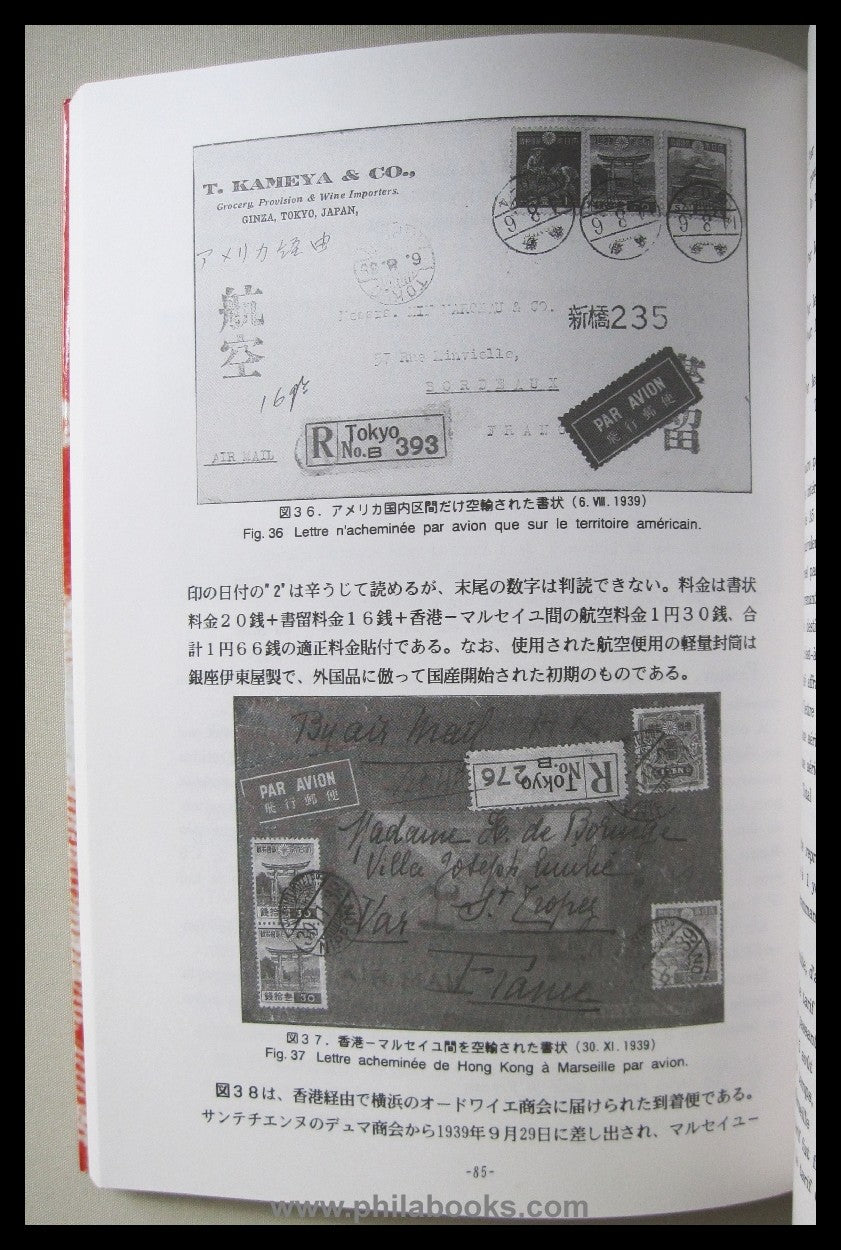 T. KAMEYA & CO.,
Grocery, Provision & Wine Importers.
GINZA, TOKYO, JAPAN,
アメリカ経由
航空
& CO.
新橋235
57 Rue Minvielle,
BORDEAUX
16
PAR AVION
飛行郵便
留
R Tokyo
No.B 393
AIR MAIL
FRANC
図36. アメリカ国内区間だけ空輸された書状 (6. Ⅷ. 1939)
Fig. 36 Lettre n'acheminée par avion que sur le territoire américain.
印の日付の"2"は辛うじて読めるが、末尾の数字は判読できない。料金は書状
料金20銭+書留料金16銭+香港-マルセイユ間の航空料金1円30銭、合
計1円66銭の適正料金貼付である。なお、使用された航空便用の軽量封筒は
銀座伊東屋製で、外国品に倣って国産開始された初期のものである。
By air Mail
PAR AVION
飛行郵便
R Tokyo
No.B 276
Madame de
Villa Joseph
St Tropez
Var
France
30
30
図37. 香港-マルセイユ間を空輸された書状 (30. XI. 1939)
Fig. 37 Lettre acheminée de Hong Kong à Marseille par avion.
図38は、香港経由で横浜のオードワイエ商会に届けられた到着便である。
サンテチエンヌのデュマ商会から1939年9月29日に差し出され、マルセイユー
-85-
www.philabooks.com